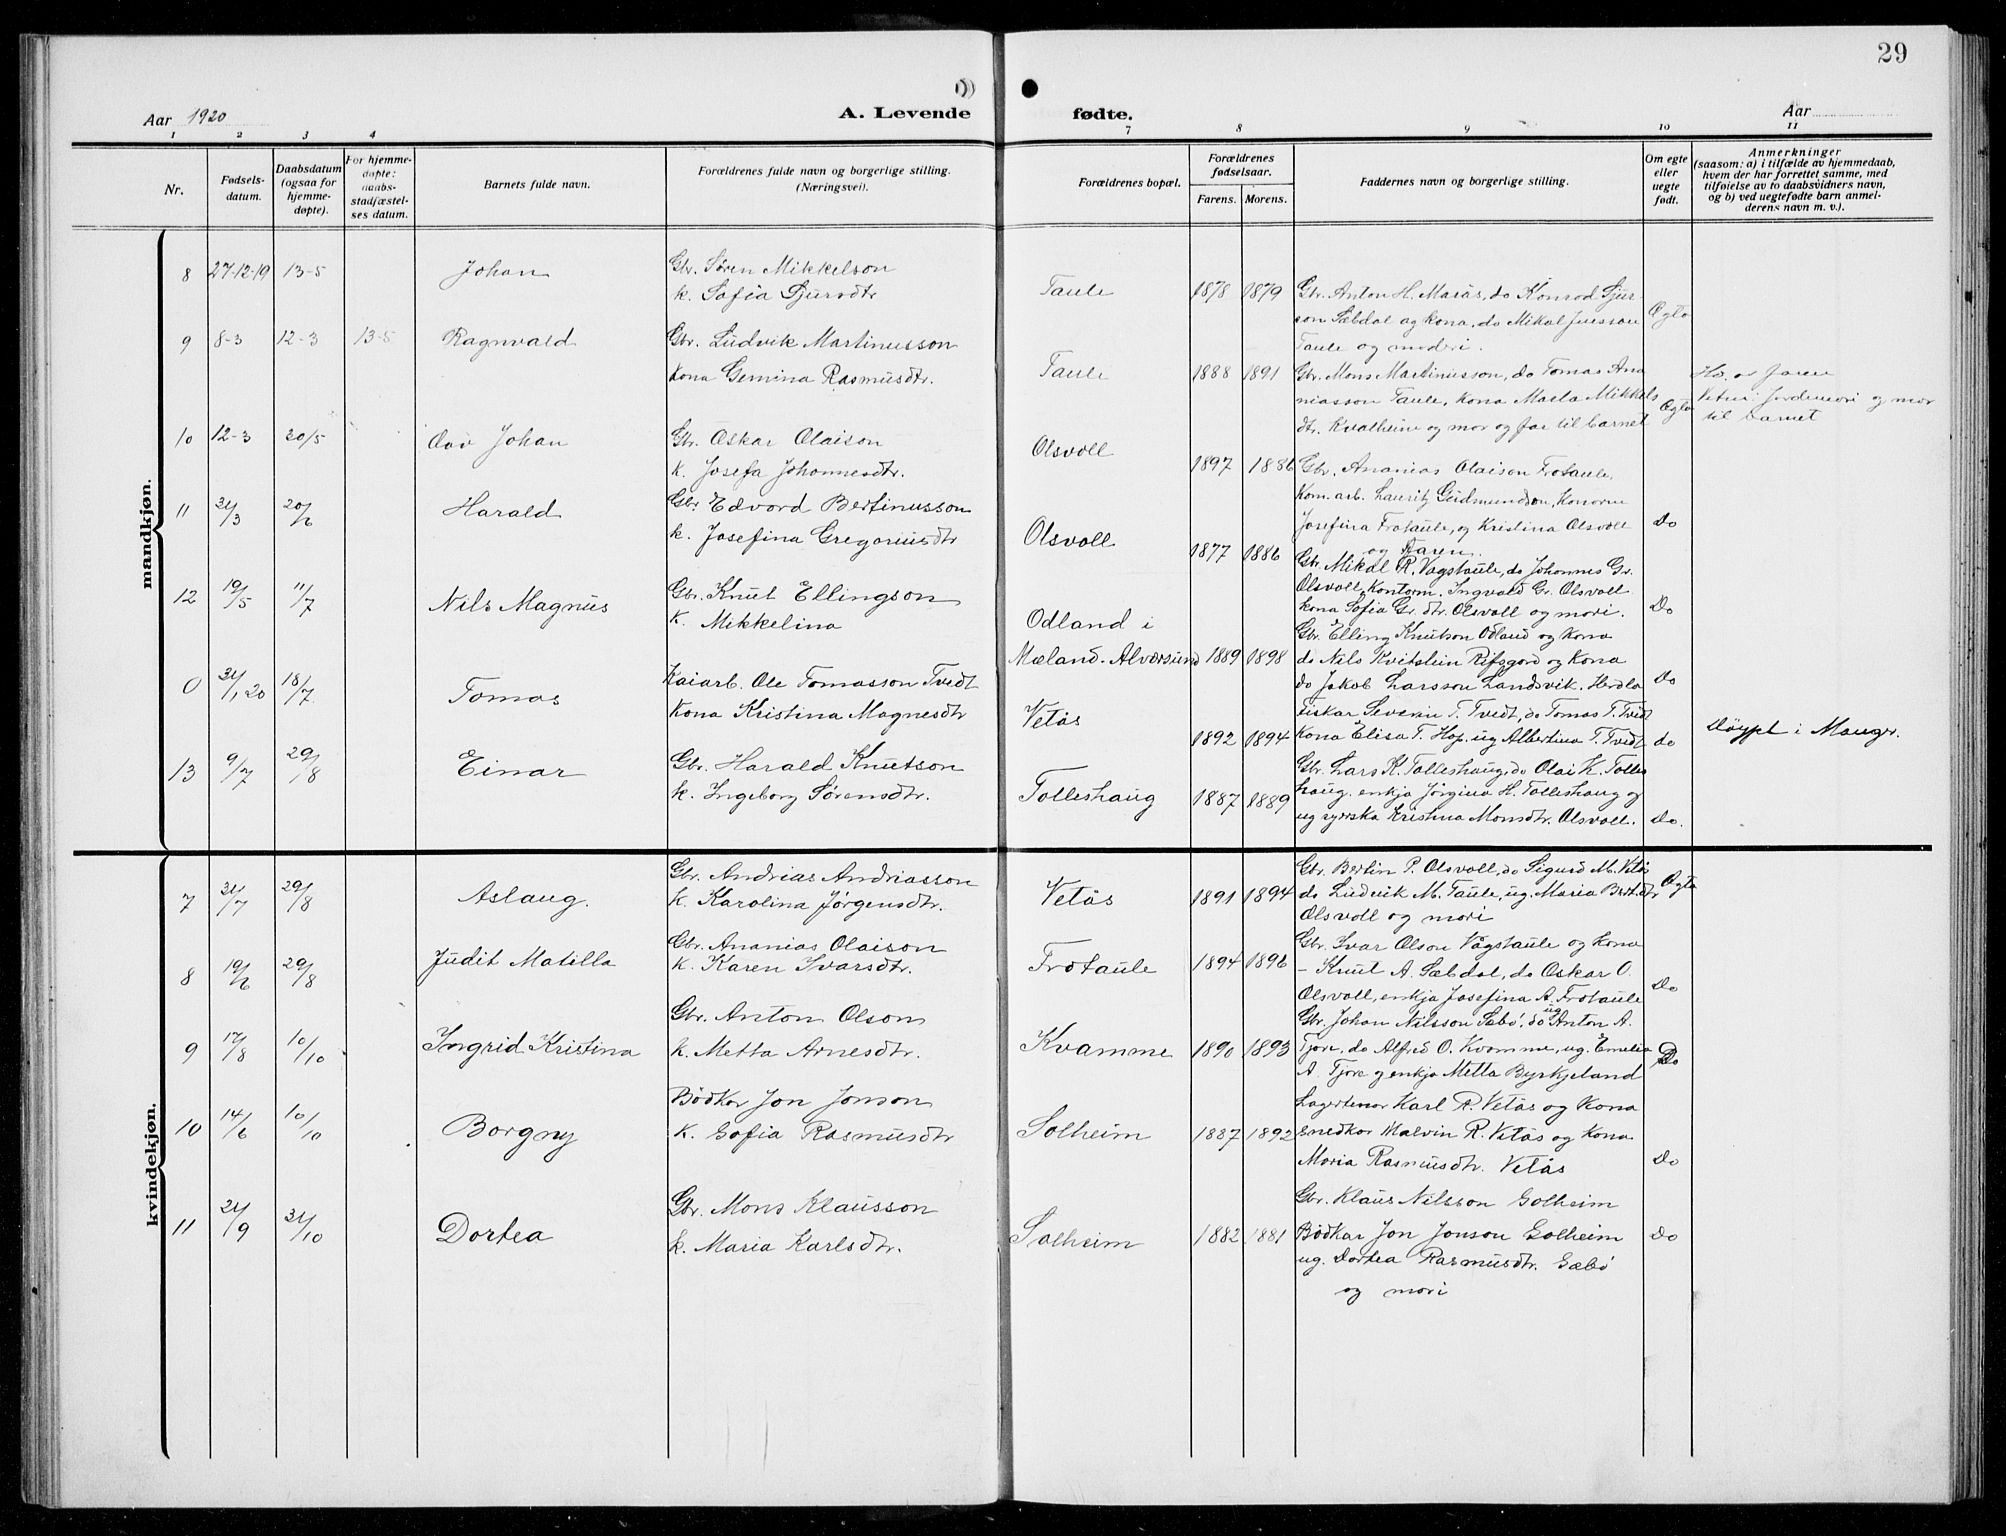 29
Aar 1920
A. Levende fødte.
Aar
1 2 3 4 7 8 9 10 11
Nr.
Fødsels-
datum.
Daabsdatum
(ogsaa for
hjemme-
døpte).
For hjemme-
døpte:
daabs-
stadfæstel-
ses datum.
Barnets fulde navn.
Forældrenes fulde navn og borgerlige stilling.
(Næringsvei).
Forældrenes bopæl.
Forældrenes
fødselsaar.
Farens. Morens.
Faddernes navn og borgerlige stilling.
Om egte
eller
uegte
født.
Anmerkninger
(saasom: a) i tilfælde av hjemmedaab,
hvem der har forrettet samme, med
tilføielse av to daabsvidners navn,
og b) ved uegtefødte barn anmel-
derens navn m. v.).
mandkjøn.
8 27-12-19 13-5 Johan
Gbr. Søren Mikkelson
k. Sofia Sjursdtr
Taule 1878 1879
Gbr. Anton H. Marås, do Konrad Sjur-
son Sæbdal og kona, do Mikal
Taule og moderi.
Ogto
9 8-3 12-3 13-5 Ragnvald
Gbr. Ludvik Martinusson
Kona Gemina Rasmusdtr.
Taule 1888 1891
Gbr. Mons Martinusson, do Tomas Ana
niasson Taule, Kona Marta Mikkels
dtr. Kvalheim og mor og far til barnet
Ogto
og mor
til barnet
10 12-3 20/5 Johan
Gbr. Oskar Olaison
k. Josefa Johannesdtr.
Olsvoll 1897 1886
Gbr. Ananias Olaison Frotaule,
Kom. arb. Lauritz Gudmundson, Konorne
Josefina Frotaule, og Kristina Olsvoll
og Faren.
Do
11 21/3 20/6 Harald
Gbr. Edvard Bertinusson
k. Josefina Gregoriusdtr
Olsvoll 1877 1886
Gbr. Mikal R. Vagstaule, do Johannes Gr.
Olsvoll, Kontorm. Ingvald Gr. Olsvoll
kona Sofia Gr. dtr. Olsvoll og mori.
Do
12 19/5 11/7 Nils Magnus
Gbr. Knut Ellingson
K. Mikkelina
Odland i
Mæland. Alversund 1889 1898
Gbr. Elling Knutson Odland og Kona
do Nils Kvitstein Rifsgord og Kona
do Jakob Larsson Landsvik. Herdla
Do
0 31/1 20 18/7 Tomas
Kaiarb. Ole Tomasson Tvedt
Kona Kristina Magnesdtr
Vetås 1892 1894
Fiskar Severin T. Tvedt, do Tomas T. Tvedt
Kona Elisa T. Hop. ug Albertina T. Tvedt
do
Døypt i Manger.
13 9/7 29/8 Einar
Gbr. Harald Knutson
k. Ingeborg Sørensdtr.
Tolleshaug 1887 1889
Gbr. Lars K. Tolleshaug, do Olai K. Tolles
haug. enkja Jørgina H. Tolleshaug og
ug syerska Kristina Monsdtr. Olsvoll.
Do.
kvindekjøn.
7 31/7 29/8 Aslaug.
Gbr. Andrias Andriasson
k. Karolina Jørgensdtr.
Vetås 1891 1894
Gbr. Bertin P. Olsvoll, do Sigurd M. Vetås
do Ludvik M. Taule, ug. Maria Bert. dtr
Olsvoll og mori
Ogto
8 19/6 29/8 Judit Matilla
Gbr. Ananias Olaison
k. Karen Ivarsdtr.
Frotaule 1894 1896
Gbr. Ivar Olson Vågstaule og kona
- Knut A. Sæbdal, do Oskar O.
Olsvoll, enkja Josefina A. Frotaule
Do
9 17/8 10/10 Ingrid Kristina
Gbr. Anton Olson
k. Metta Arnesdtr.
Kvamme 1890 1893
Gbr. Johan Nilsson Sæbö, do ug Anton A.
Tjore, do Alfred O. Kvamme, ug. Emelia
A. Tjore og enkja Metta Byrkjeland
Do
10 14/6 10/10 Borgny
Bödkar Jon Jonson
K. Sofia Rasmusdtr
Solheim 1887 1892
Lagertenar Karl R. Vetås og Kona
Snedkar Malvin R. Vetås og Kona
Maria Rasmusdtr. Vetås
Do
11 21/9 31/10 Dortea
Gbr. Mons Klausson
k. Maria Karlsdtr.
Solheim 1882 1881
Gbr. Klaus Nilsson Solheim
Bödkar Jon Jonson Solheim
ug. Dortea Rasmusdtr. Sæbö
og mori
Do